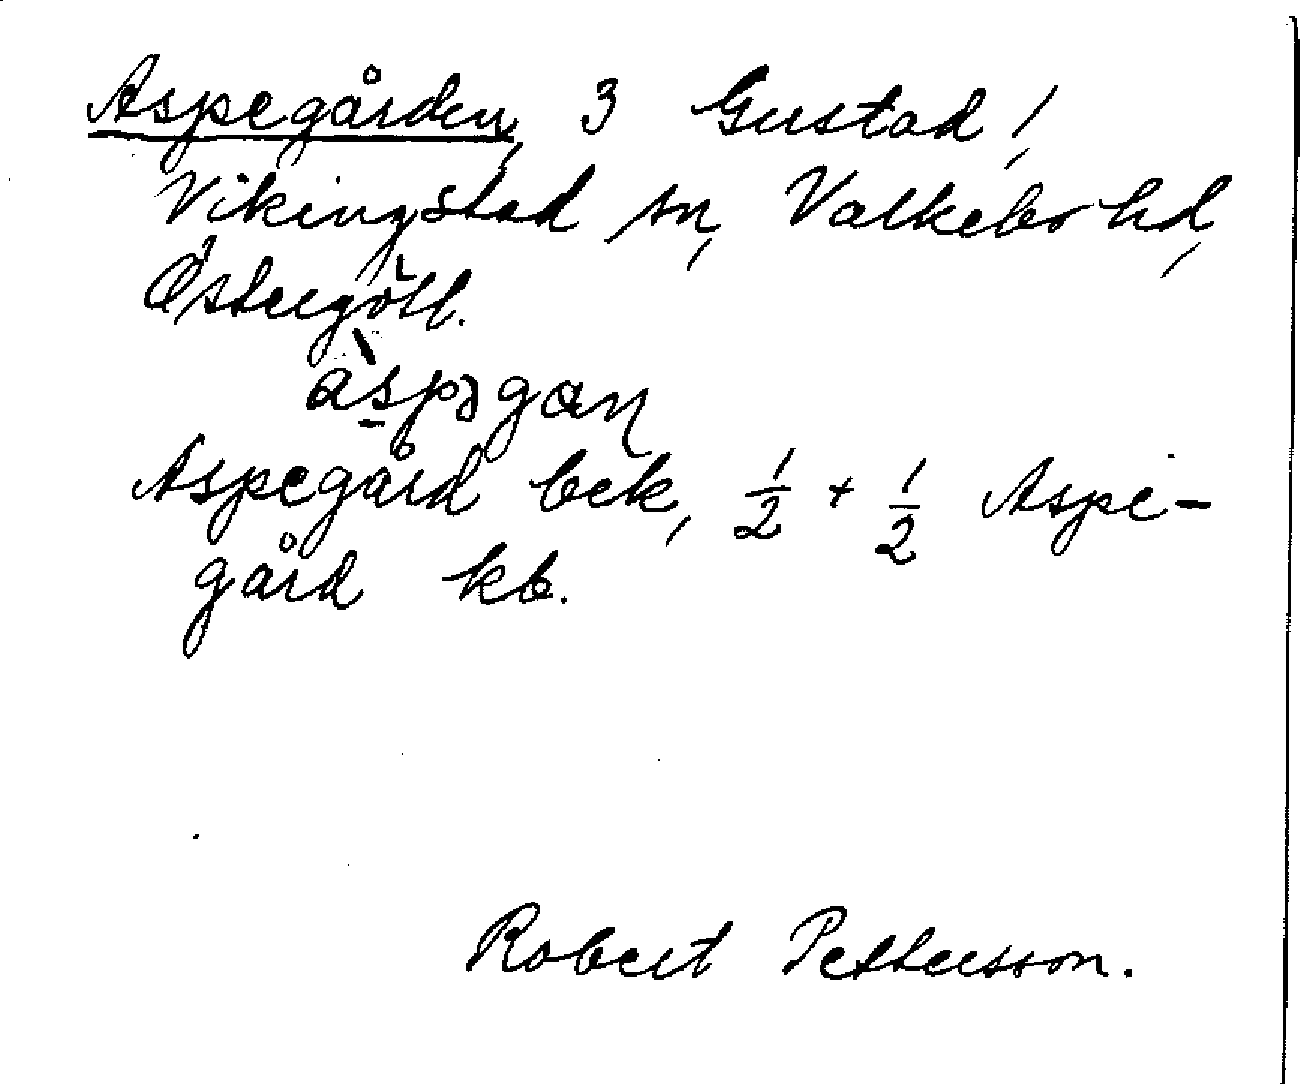 Aspegården, 3 Gustad,
Vikingstad sn, Valkebo hd,
Östergötl.
àspəgan
Aspegård bek, 1/2 + 1/2 Aspe-
gård kb.
Robert Pettersson.